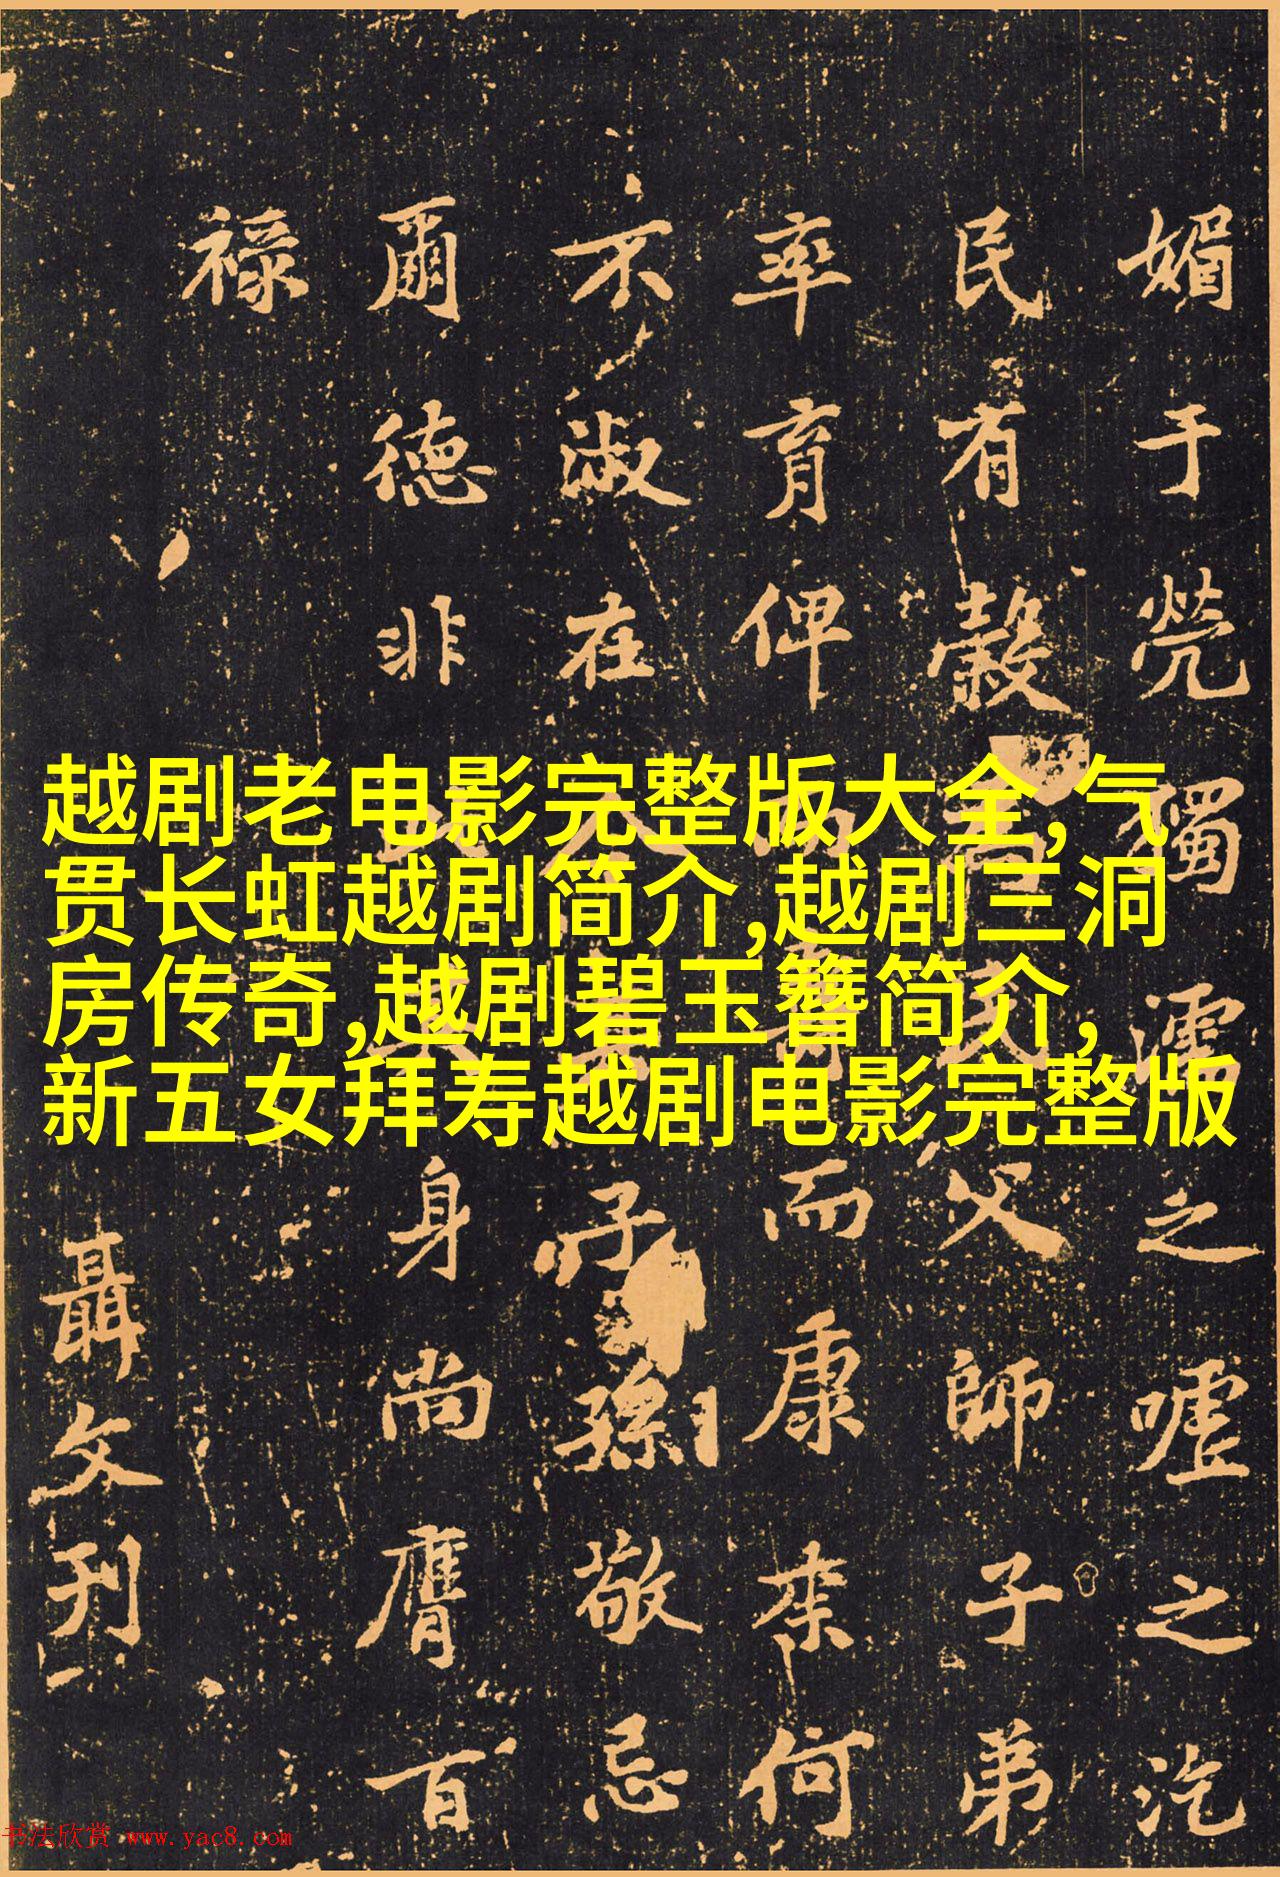 越剧老电影完整版大全,气
贯长虹越剧简介,越剧三洞
房传奇,越剧碧玉簪简介,
新五女拜寿越剧电影完整版
媚于茕獨濡之嘘之汔
民有穀 民父師子弟
率育俾 而康来何
不淑在 子孫敬忌
爾德非 身尚膺百
禄
聶文刊
书法欣赏 www.yac8.com